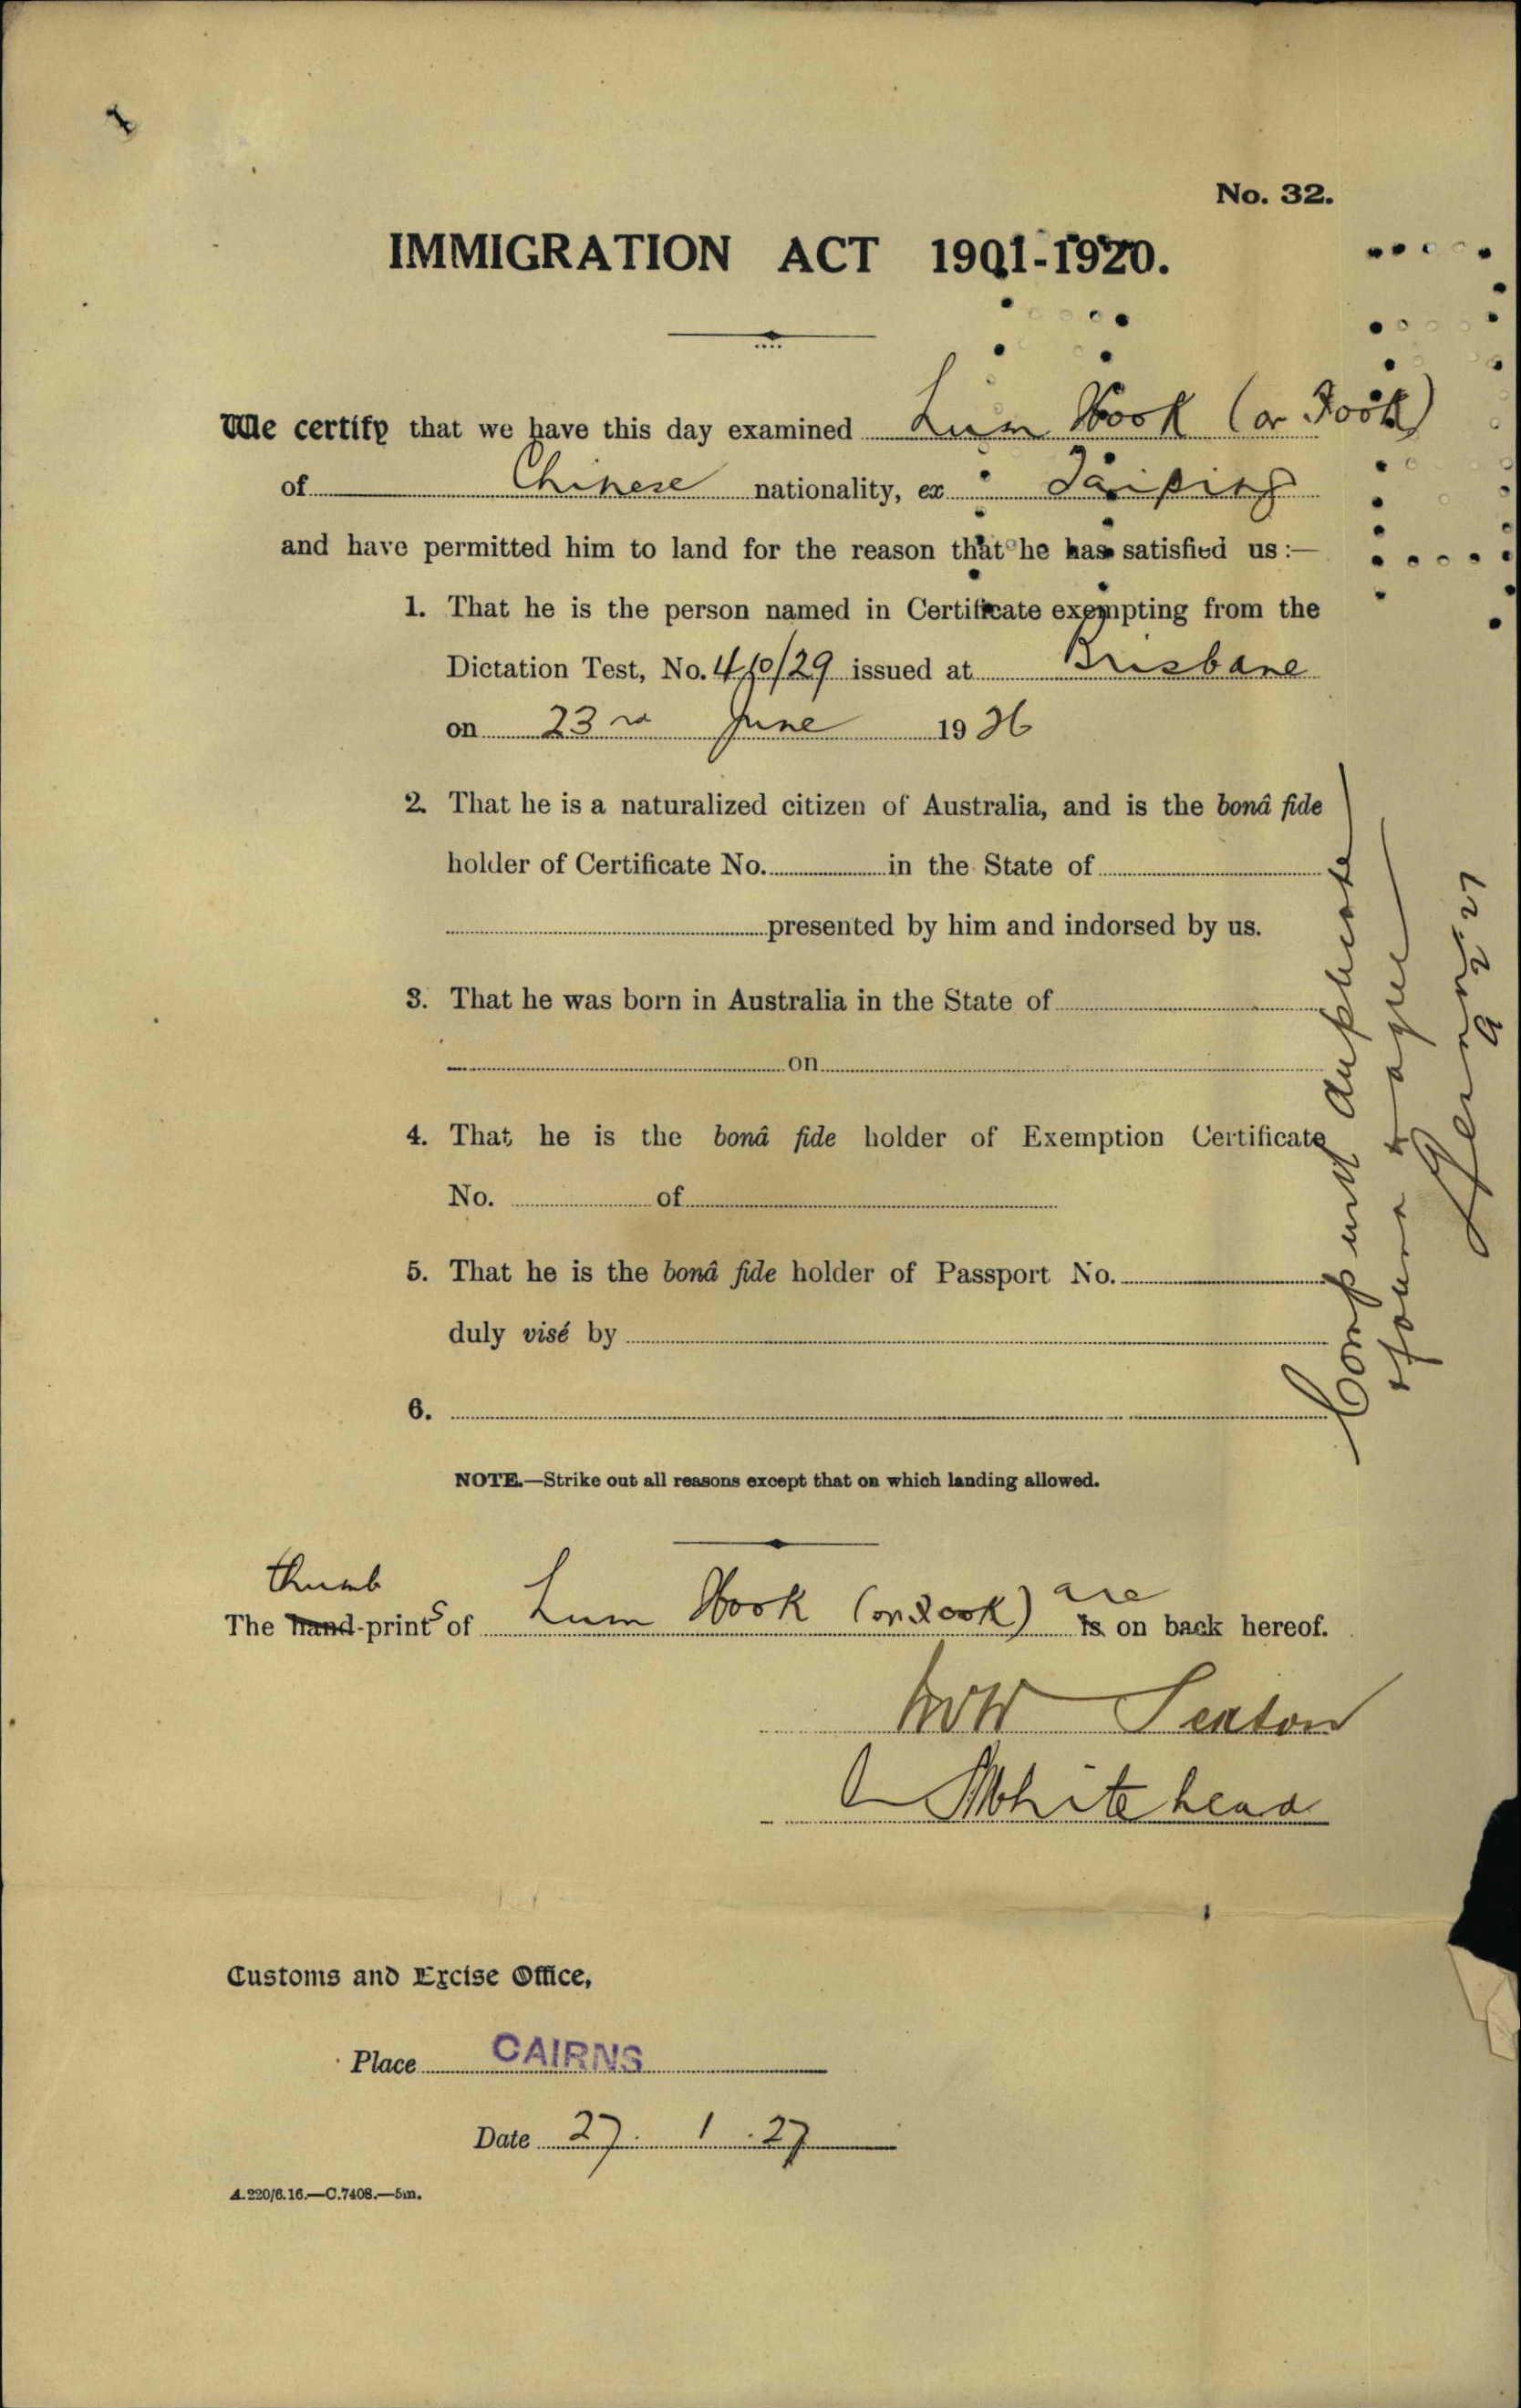 No. 32.
IMMIGRATION ACT 1901-1920.
We certify that we have this day examined Lum Hook (or Fook)
of Chinese nationality, ex Taiping
and have permitted him to land for the reason that he has satisfied us:—
1. That he is the person named in Certificate exempting from the
Dictation Test, No. 410/29 issued at Brisbane
on 23rd June 1926
2. That he is a naturalized citizen of Australia, and is the bonâ fide
holder of Certificate No. in the State of
presented by him and indorsed by us.
3. That he was born in Australia in the State of
on
4. That he is the bonâ fide holder of Exemption Certificate
No. of
5. That he is the bonâ fide holder of Passport No.
duly visé by
6.
NOTE.—Strike out all reasons except that on which landing allowed.
thumb are
The hand-prints of Lum Hook (or Fook) is on back hereof.
Sexton
Whitehead
Customs and Excise Office,
Place CAIRNS
Date 27. 1. 27
A.220/6.16.—C.7408.—5m.
Compared duplicate
& found to agree
9.2.27